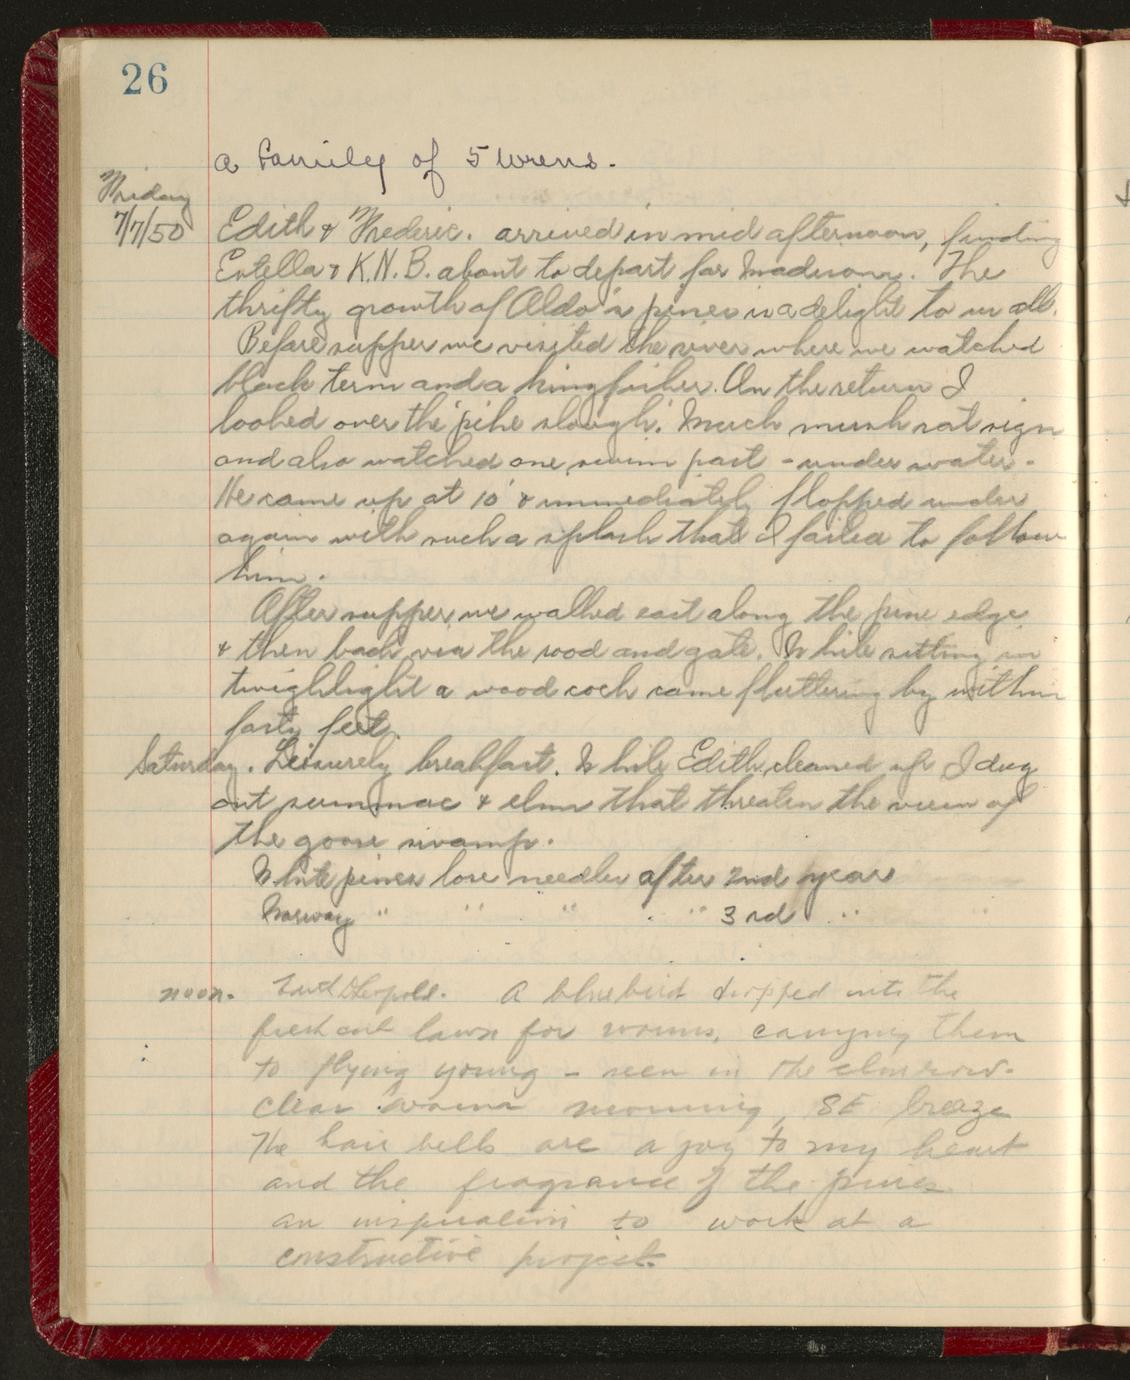 26
a family of 5 wrens.
Friday
7/7/50
Edith & Frederic. arrived in mid afternoon, finding
Estella & K.N.B. about to depart for Madison. The
thrifty growth of Aldo's pines is a delight to us all.
Before supper we visited the river where we watched
black tern and a kingfisher. On the return I
looked over the 'pike slough'. Much muskrat sign
and also watched one swim past - under water -
He came up at 10' & immediately flopped under
again with such a splash that I failed to follow
him.
After supper we walked east along the pine edge
& then back via the wood and gate. While sitting in
twighlight a woodcock came fluttering by within
forty feet.
Saturday. Leisurely breakfast. While Edith cleaned up I dug
out summac & elm that threaten the view of
the goose swamp.
White pines lose needles after 2nd year
Norway " " " " " 3rd "
noon. A bluebird dropped into the
fresh cut lawn for worms, carrying them
to flying young - seen in the elm row.
Clear warm morning, SE breeze
The hair bells are a joy to my heart
and the fragrance of the pines
an inspiration to work at a
constructive project.